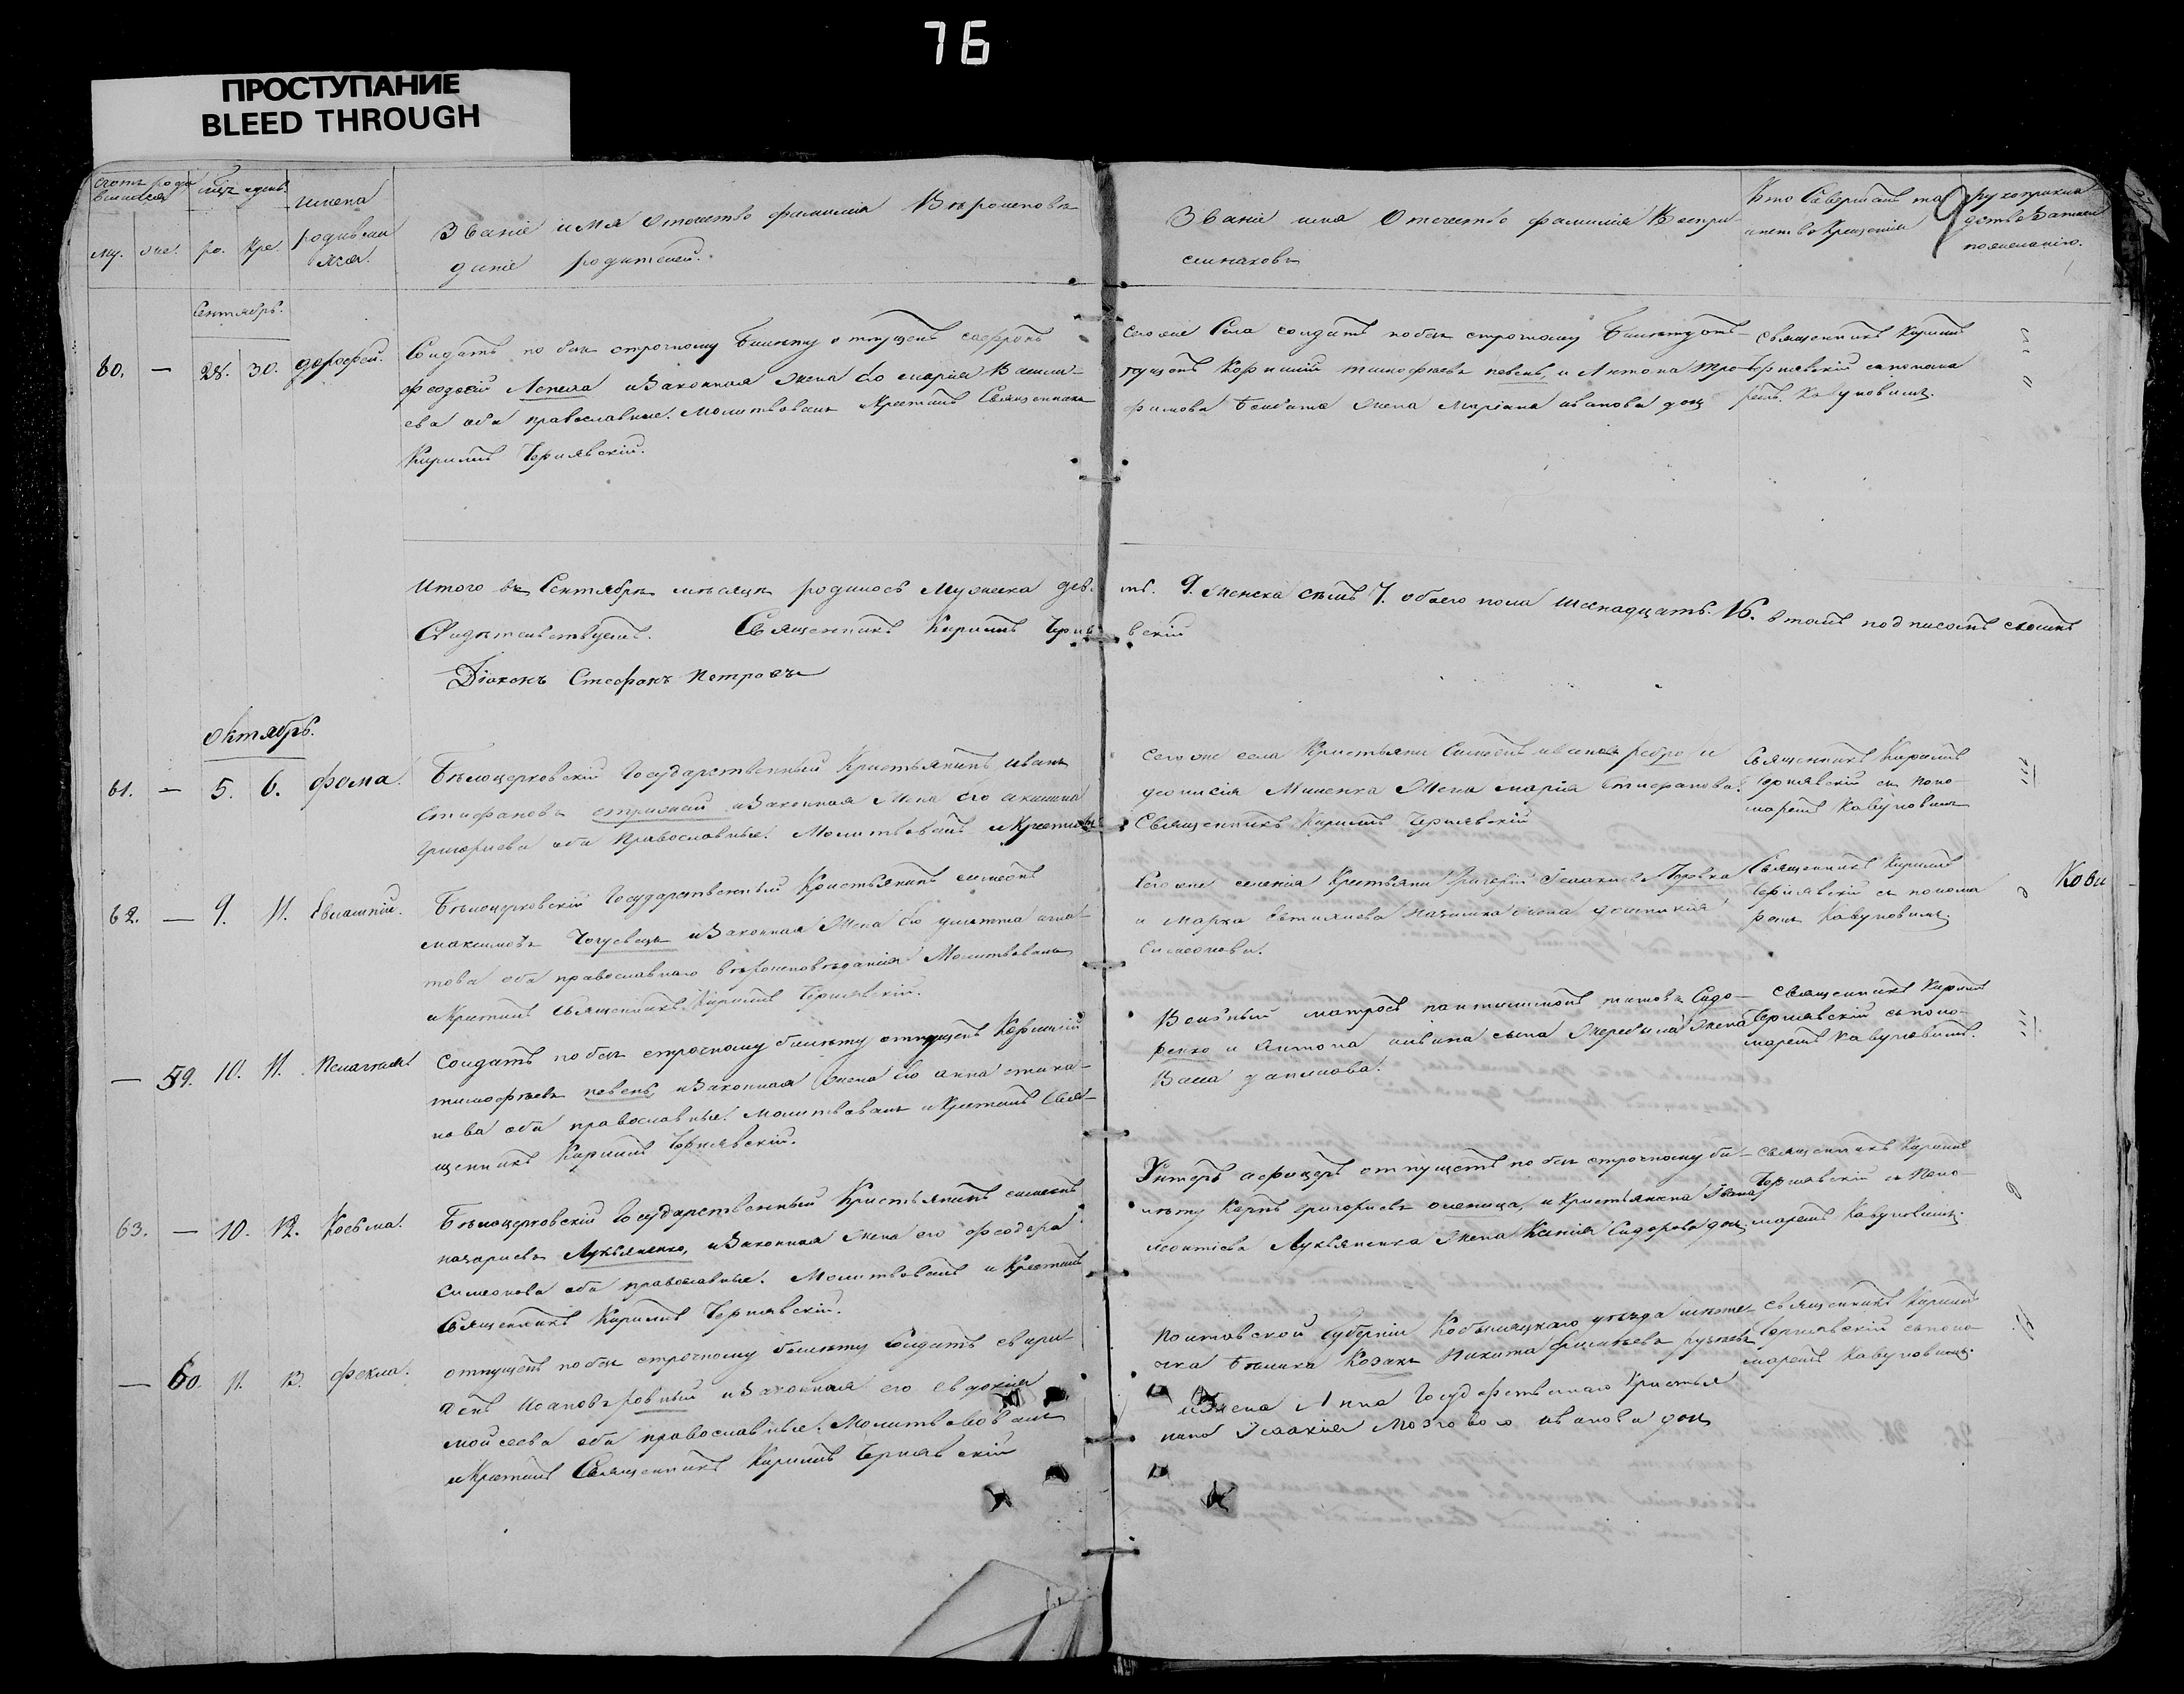 76
ПРОСТУПАНИЕ
BLEED THROUGH
Счотъ роди
вшихся
мѣц. и день.
имена
родивши
хся.
му. же. ро. кре.
Званіе имя Отечество фамилія Вѣроисповѣ
даніе родителей.
Званіе имя Отечество фамилія Воспри-
емниковъ
Кто Совершалъ та
инство Крещенія
рукоприкла
дство
по желанію.
Сентябрь.
60. — 28. 30. дорофей.
Солдатъ по без строчному билету отпущенъ софронъ
феодосій Лепеха и Законная Жена его марія Василі-
ева оба православные. молитвовалъ и Крестилъ Священникъ
Кирилъ Чернявскій.
Сего же Села солдатъ по без строчному билету от-
пущенъ Корнилій тимофѣевъ певень, и Антона Тро-
фимова жена Маріана иванова дощ
священникъ Кирилъ
Чернявскій с понома
ремъ Кабуновимъ.
Итого въ Сентябрѣ мѣсяцѣ родилось Мужеска дев.
ть. 9. женска семь 7. обоего пола шеснадцать. 16. в томъ подписомъ своимъ
Свидѣтельствуетъ. Священникъ Кирилъ Черня
вскій
Діаконъ Стефанъ Петровъ
октябрь.
61. — 5. 6. фома.
Бѣлоцерковскій Государственный Крестьянинъ иванъ
Стифановъ стрижай и Законная Жена его акилина
григориева оба Православные. Молитвовалъ и Крестилъ
Сего же села Крестьяни Симеонъ ивановъ ребро и
деонисія Миненка Жена марія Стифанова.
Священникъ Кирилъ Чернявскій
Священникъ Кирилъ
Чернявскій съ Поно-
маремъ Кабуновимъ
62. — 9. 11. Евлампій.
Бѣлоцерковскій Государственный Крестьянинъ симеонъ
максимовъ Чогувецъ и Законная Жена его улита игна-
това оба православнаго вѣроисповѣданія Молитвовалъ
и Крестилъ Священникъ Кирилъ Чернявскій.
Сего же селенія Крестьяни Григорій Исаакиевъ Муровка
и Марка Евтихиева жена домникія
Симеонова.
Священникъ Кирилъ
Чернявскій съ понома
ремъ Кабуновимъ.
Кови
— 59. 10. 11. Пелагиия
Солдатъ по без строчному билету отпущенъ Корнилій
тимофѣевъ певень, и Законная Жена его анна стиха-
нова оба православные. молитвовалъ и Крестилъ Свя-
щенникъ Кирилъ Чернявскій.
Вольный матросъ пантилимонъ титовъ Сидо-
ренко и Антона сына Жеребила Жена
Васса данилова.
Священникъ Кирилъ
Чернявскій съ поно-
маремъ Кабуновимъ.
63. — 10. 12. Косьма.
Бѣлоцерковскій Государственный Крестьянинъ симеонъ
назариевъ Лукьяненко, и Законная Жена его феодора
Симеонова оба православные. Молитвовалъ и Крестилъ
Священникъ Кирилъ Чернявскій.
Унтеръ офицеръ отпущенъ по без строчному би-
лѣту Карпъ григориевъ оленица, и Крестьянина Ивана
леонтіева Лукьяненка Жена Ксенія Сидорова дощ.
священникъ Кирилъ
Чернявскій съ Поно-
маремъ Кабуновимъ.
— 60. 11. 13. фекла.
отпущенъ по без строчному билету Солдатъ
Исановъ ровный и Законная его Евдокия
мойсеева оба православные. Молитвовалъ
и Крестилъ Священникъ Кирилъ Чернявскій
Полтавской губерніи Кобыляцкаго уезда мѣсте-
чка Бѣлика Козакъ Никита
и Жена Анна Государственнаго Крестья
нина Исаакия Мозгового иванова дощ
священникъ Кирилъ
Чернявскій съ поно
маремъ Кабуновимъ.